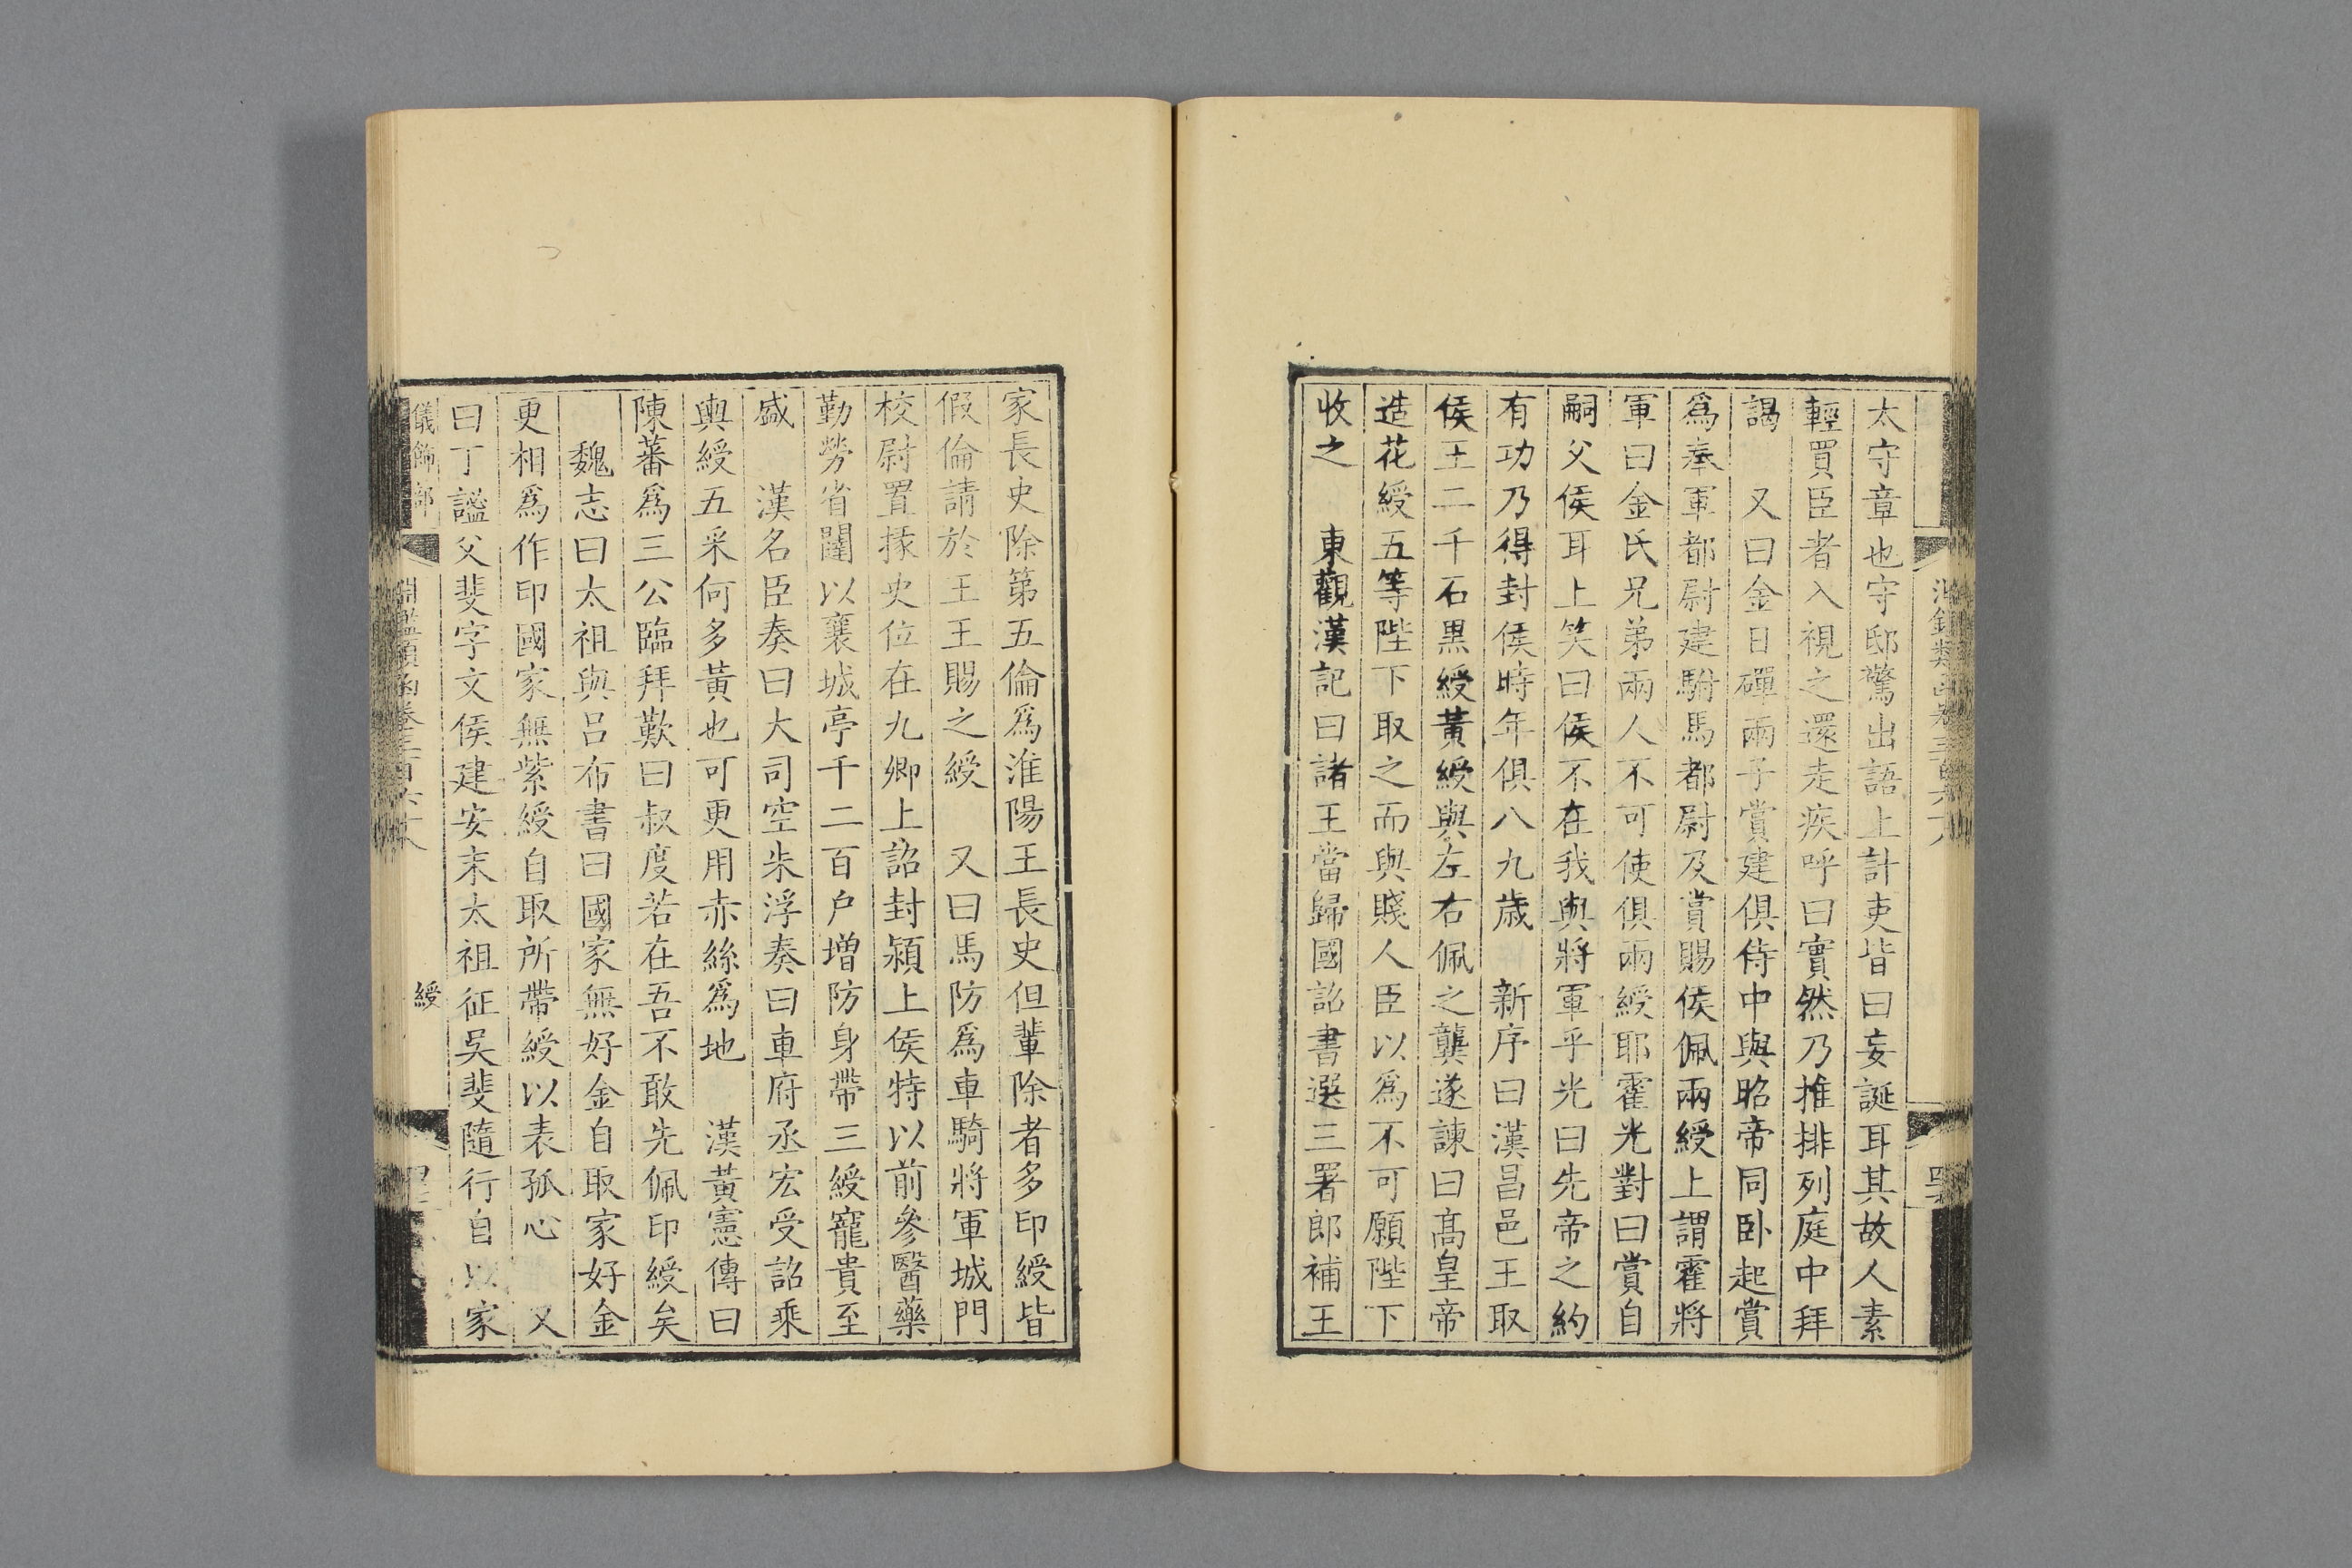 太守章也守邸驚出語上計吏皆曰妄誕耳其故人素
輕買臣者入視之還走疾呼曰實然乃推排列庭中拜
謁　又曰金日磾兩子賞建俱侍中與昭帝同卧起賞
為奉車都尉建駙馬都尉及賞賜侯佩兩綬上謂霍將
軍曰金氏兄弟兩人不可使俱兩綬耶霍光對曰賞自
嗣父侯耳上笑曰侯不在我與將軍乎光曰先帝之約
有功乃得封侯時年俱八九歲　新序曰漢昌邑王取
侯王二千石黑綬黃綬與左右佩之龔遂諫曰高皇帝
造花綬五等陛下取之而與賤人臣以為不可願陛下
收之　東觀漢記曰諸王當歸國詔書選三署郎補王
家長史除第五倫為淮陽王長史但輩除者多印綬皆
假倫請於王王賜之綬　又曰馬防為車騎將軍城門
校尉置掾史位在九卿上詔封潁上侯特以前參醫藥
勤勞省闥以襄城亭千二百户增防身帶三綬寵貴至
盛　漢名臣奏曰大司空朱浮奏曰車府丞宏受詔乘
輿綬五采何多黃也可更用赤絲為地　漢黃憲傳曰
陳蕃為三公臨拜歎曰叔度若在吾不敢先佩印綬矣
魏志曰太祖與呂布書曰國家無好金自取家好金
更相為作印國家無紫綬自取所帶綬以表孤心　又
曰丁謐父斐字文侯建安末太祖征吳斐隨行自以家
儀飾部　淵鑑類函卷三百六十八　綬